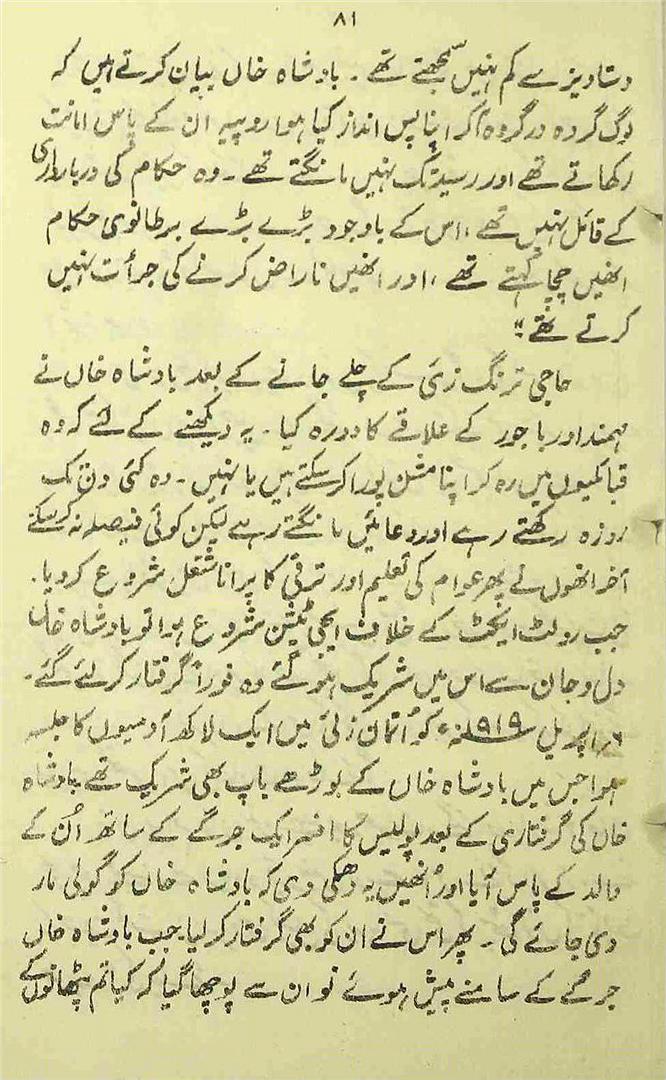 ۸۱
دستاویز سے کم نہیں سمجھتے تھے۔ بادشاہ خاں بیان کرتے ہیں کہ
لوگ گروہ در گروہ آکر اپنا پس انداز کیا ہوا روپیہ ان کے پاس امانت
رکھاتے تھے اور رسید تک نہیں مانگتے تھے۔ وہ حکام کی دربارداری
کے قائل نہیں تھے، اس کے باوجود بڑے بڑے برطانوی حکام
انھیں چچا کہتے تھے، اور انھیں ناراض کرنے کی جرأت نہیں
کرتے تھے"
حاجی ترنگ زئی کے چلے جانے کے بعد بادشاہ خاں نے
مہمند اور باجور کے علاقے کا دورہ کیا۔ یہ دیکھنے کے لئے کہ وہ
قبائلیوں میں رہ کر اپنا مشن پورا کر سکتے ہیں یا نہیں۔ وہ کئی دن تک
روزہ رکھتے رہے اور دعائیں مانگتے رہے لیکن کوئی فیصلہ نہ کر سکے
آخر انھوں نے پھر عوام کی تعلیم اور ترقی کا پرانا شغل شروع کر دیا۔
جب رولٹ ایکٹ کے خلاف ایجی ٹیشن شروع ہوا تو بادشاہ خاں
دل و جان سے اس میں شریک ہو گئے وہ فوراً گرفتار کر لئے گئے۔
۶؍ اپریل ۱۹۱۹ء کو اُتمان زئی میں ایک لاکھ آدمیوں کا جلسہ
ہوا جس میں بادشاہ خاں کے بوڑھے باپ بھی شریک تھے بادشاہ
خاں کی گرفتاری کے بعد پولیس کا افسر ایک جرگے کے ساتھ اُن کے
والد کے پاس آیا اور اُنھیں یہ دھمکی دی کہ بادشاہ خاں کو گولی مار
دی جائے گی۔ پھر اس نے ان کو بھی گرفتار کر لیا۔ جب بادشاہ خاں
جرگے کے سامنے پیش ہوئے تو ان سے پوچھا گیا کہ کیا تم پٹھانوں کے